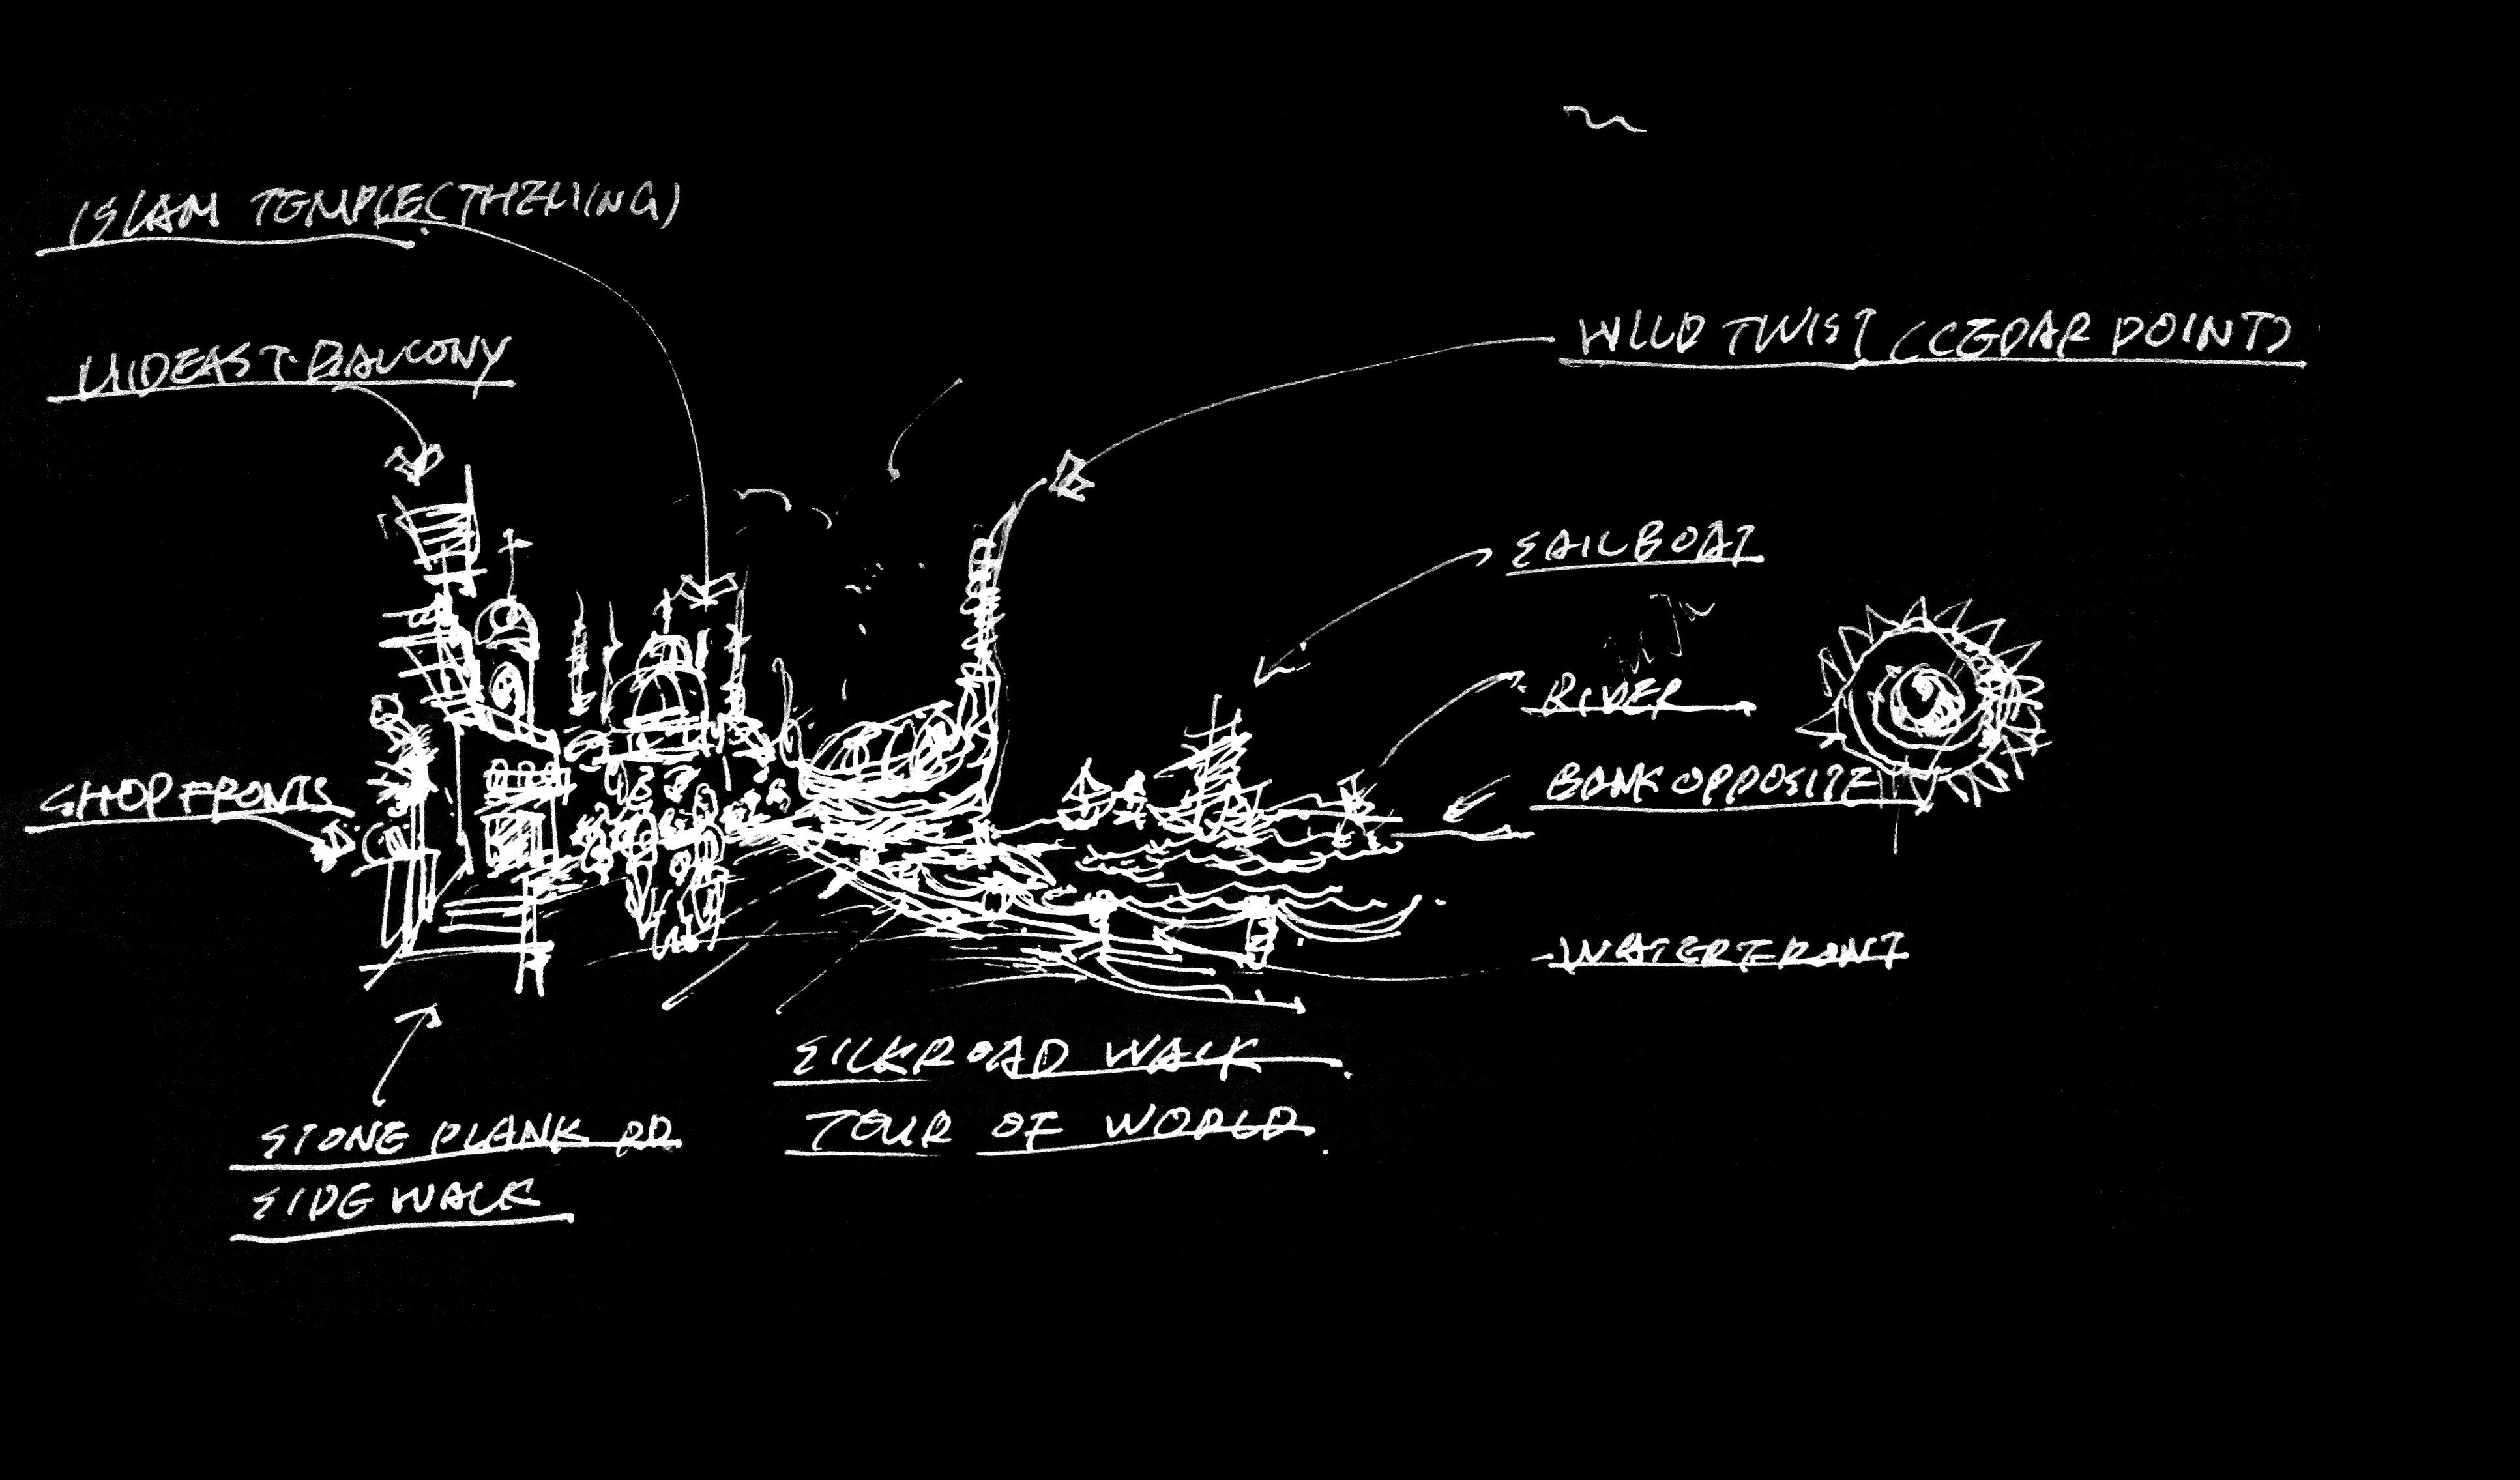 ISLAM TEMPLE(THEMING)
MIDEAST BALCONY
WILD TWIST (CEDAR POINT)
SAILBOAT
RIVER
SHOPFRONTS
BANK OPPOSITE
WATERFRONT
SILKROAD WALK
TOUR OF WORLD.
STONE PLANK RD
SIDEWALK